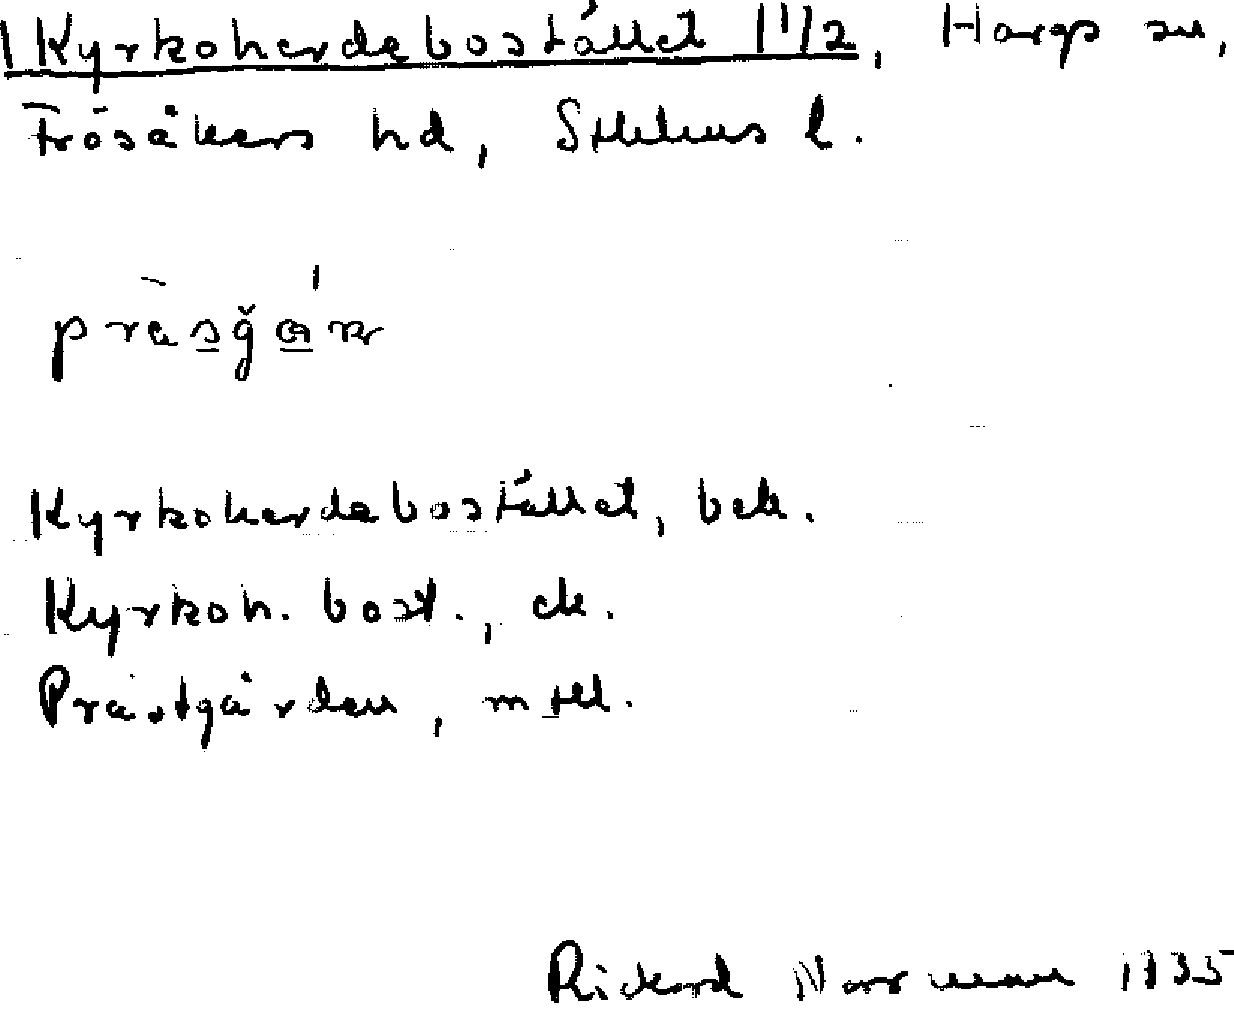 Kyrkoherdebostället 1 1/2, Hargs sn,
Frösåkers hd, Sthlms l.
Kyrkoherdebostället, bek.
Kyrkoh. bost., ek.
Prästgården, mtll.
Rickard Norrman 1935